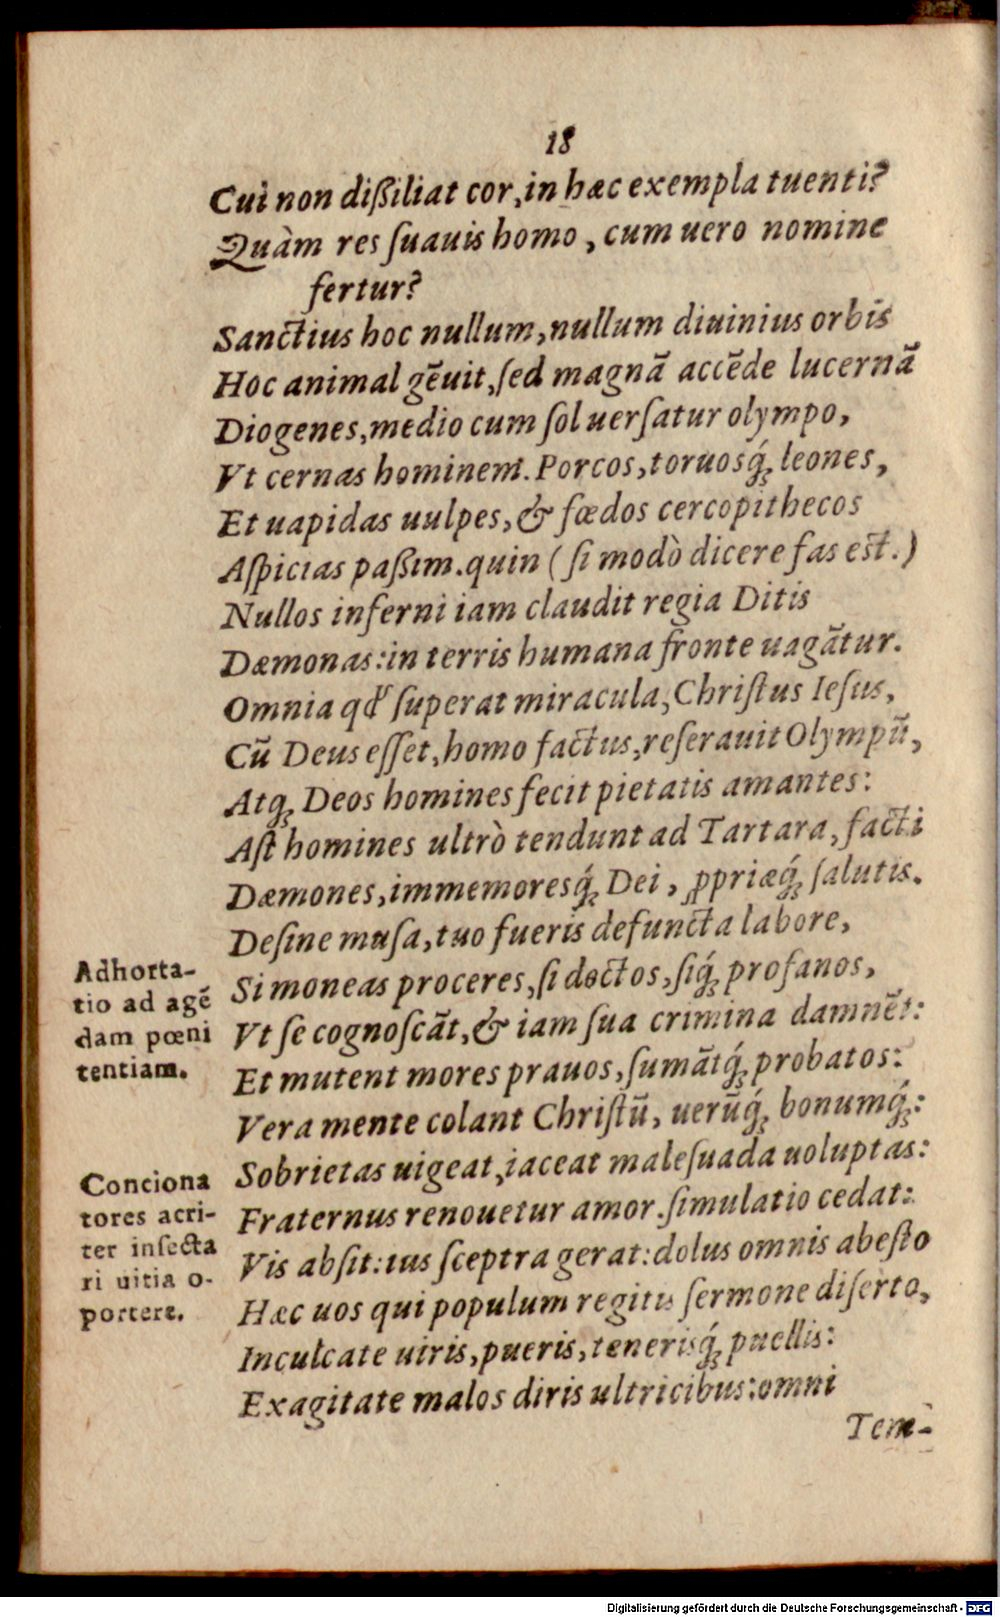 18
Cui non dißiliat cor, in hæc exempla tuenti?
Quàm res ſuauis homo, cum uero nomine
fertur?
Sanctius hoc nullum, nullum diuinius orbis
Hoc animal gẽuit, ſed magnã accẽde lucernã
Diogenes, medio cum ſol uerſatur olympo,
Vt cernas hominem. Porcos, toruosq́ꝫ leones,
Et uapidas uulpes, & fœdos cercopithecos
Aſpicias paßim. quin (ſi modò dicere fas est.)
Nullos inferni iam claudit regia Ditis
Dæmonas: in terris humana fronte uagãtur.
Omnia qđ ſuperat miracula, Chriſtus Ieſus,
Cũ Deus eſſet, homo factus, reſerauit Olympũ,
Atqꝫ Deos homines fecit pietatis amantes:
Aſt homines ultrò tendunt ad Tartara, facti
Dæmones, immemoresq́ꝫ Dei, ꝓpriæq́ꝫ ſalutis.
Deſine muſa, tuo fueris defuncta labore,
Adhorta-
tio ad agẽ
dam pœni
tentiam.
Si moneas proceres, ſi doctos, ſiq́ꝫ profanos,
Vt ſe cognoſcãt, & iam ſua crimina damnẽt:
Et mutent mores prauos, ſumãtq́ꝫ probatos:
Vera mente colant Chriſtũ, uerũq́ꝫ bonumq́ꝫ:
Conciona
tores acri-
ter inſecta
ri uitia o-
portere.
Sobrietas uigeat, iaceat maleſuada uoluptas:
Fraternus renouetur amor. ſimulatio cedat:
Vis abſit: ius ſceptra gerat: dolus omnis abeſto
Hæc uos qui populum regitis ſermone diſerto,
Inculcate uiris, pueris, tenerisq́ꝫ puellis:
Exagitate malos diris ultricibus: omni
Tem-
Digitalisierung gefördert durch die Deutsche Forschungsgemeinschaft - DFG